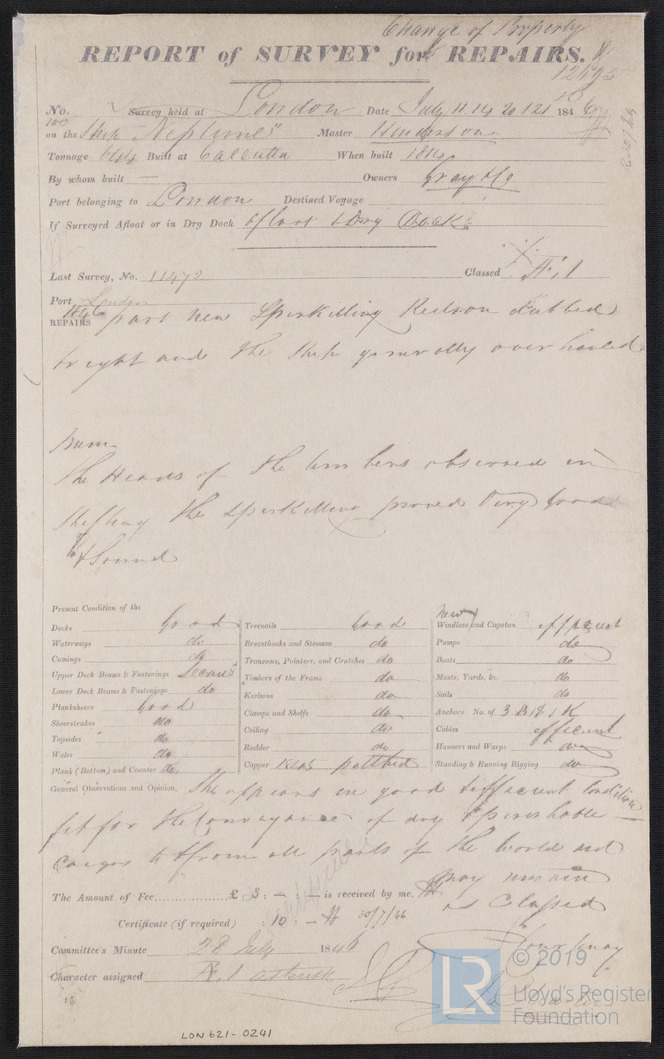 Change of Property
REPORT of SURVEY for REPAIRS.
12495
No. Survey held at London Date July 11. 14 20 & 21st 1846
on the Ship Neptune Master Henderson
Tonnage 644 Built at Calcutta When built 1814
By whom built — Owners Gray & Co
Port belonging to London Destined Voyage
If Surveyed Afloat or in Dry Dock Afloat & Dry Dock
Last Survey, No. 11472 Classed Æ, 1
Port London
REPAIRS part new Spirkitting Keelson dubbed
bright and the Ship generally over hauled
The Heads of the timbers observed in
Shifting the Spirkitting proved Very Good
& Sound
Present Condition of the
Decks Good
Waterways do
Comings do
Upper Deck Beams & Fastenings Secure
Lower Deck Beams & Fastenings do
Planksheers Good
Sheerstrakes do
Topsides do
Wales do
Plank (Bottom) and Counter do
Treenails Good
Breasthooks and Stemson do
Transoms, Pointers, and Crutches do
Timbers of the Frame do
Keelsons do
Clamps and Shelfs do
Ceiling do
Rudder do
Copper
New
Windlass and Capstan efficient
Pumps do
Boats do
Masts, Yards, &c. do
Sails do
Anchors No. of 3 B 1 S 1 K
Cables efficient
Hawsers and Warps do
Standing & Running Rigging do
General Observations and Opinion, She appears in good & efficient Condition
fit for the Conveyance of dry & perishable
Cargos to & from all parts of the World and
may remain
as Classed
The Amount of Fee £ 3 : — — is received by me,
Certificate (if required) : 10 : — 30/7/46
Committee's Minute 28 July 1846
Character assigned Æ 1
LON 621 - 0241
LR
© 2019
Lloyd's Register
Foundation